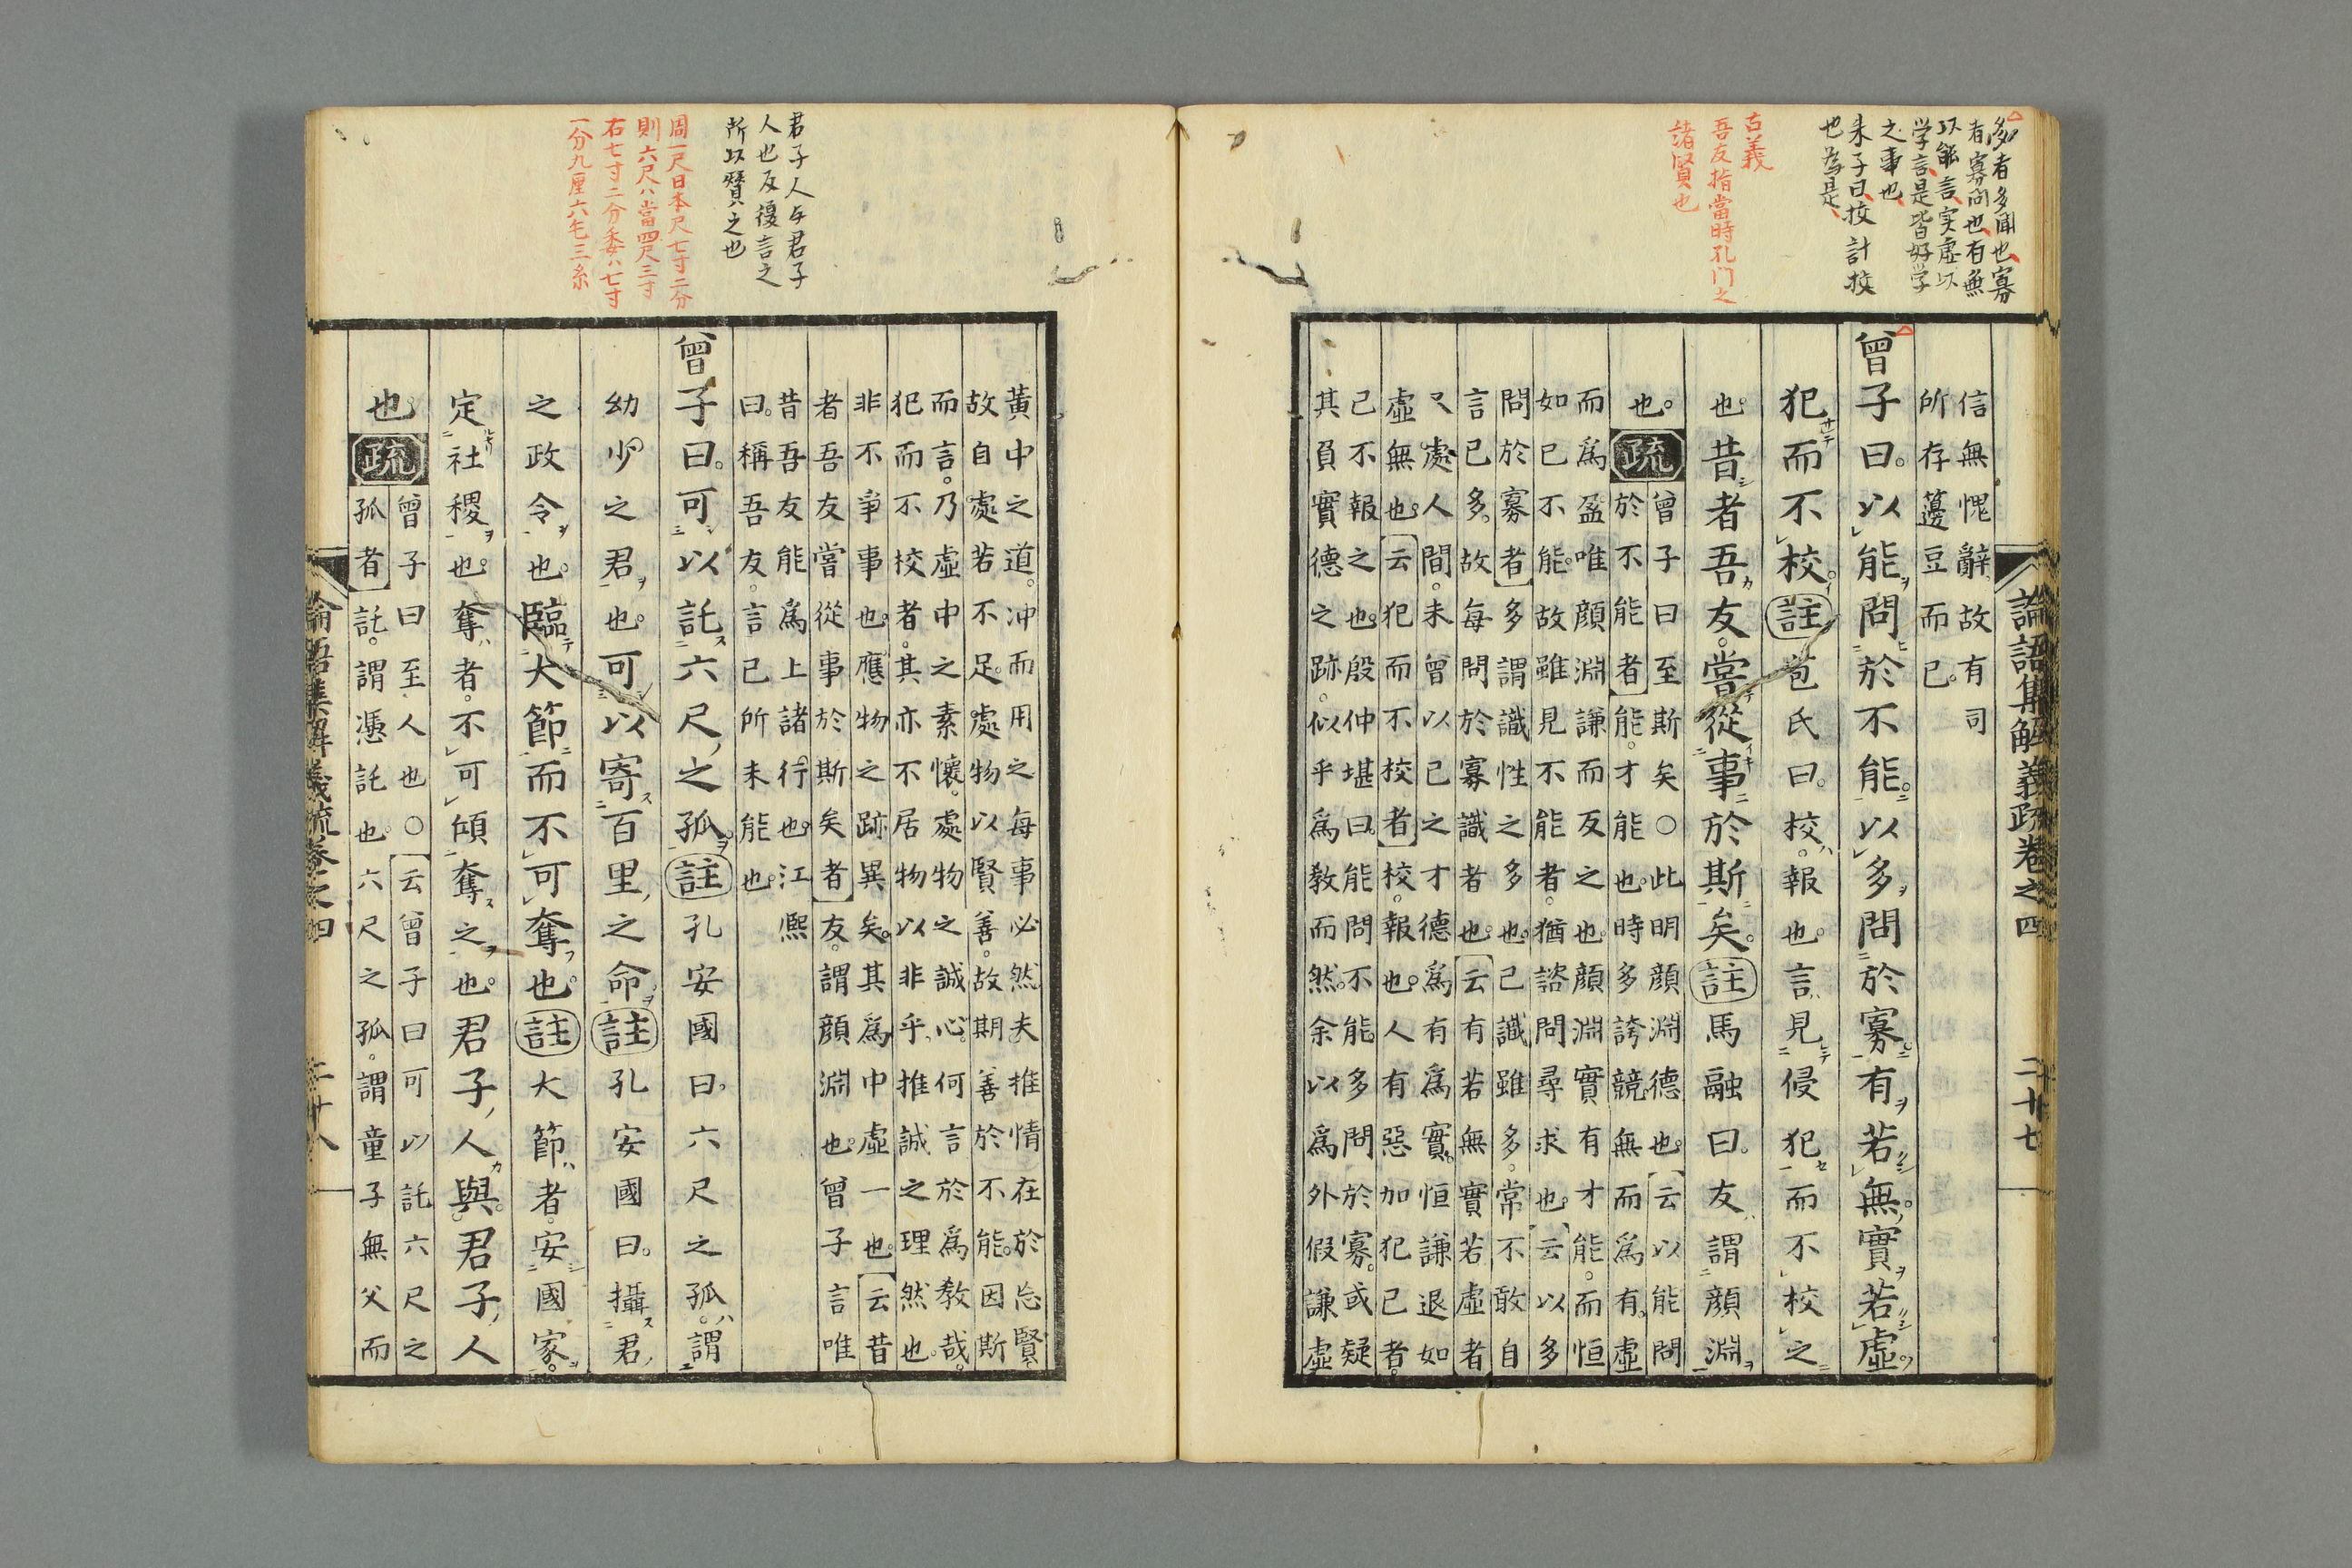 多者多聞也寡
者寡問也有無
以能言実虚以
学言是皆好学
之事也
朱子曰挍計挍
也為是
古義
吾友指當時孔门之
諸賢也
論語集解義疏卷之四
二十七
信無愧辭故有司
所存籩豆而已
曾子曰以能問於不能以多問於寡有若無實若虛
犯而不校註苞氏曰校報也言見侵犯而不校之
也昔者吾友嘗從事於斯矣註馬融曰友謂顏淵
也疏
曾子曰至斯矣○此明顏淵德也云以能問
於不能者能才能也時多誇競無而爲有虛
而爲盈唯顏淵謙而反之也顏淵實有才能而恒
如己不能故雖見不能者猶諮問尋求也云以多
問於寡者多謂識性之多也己識雖多常不敢自
言己多故每問於寡識者也云有若無實若虛者
又處人間未曾以己之才德爲有爲實恒謙退如
虛無也云犯而不校者校報也人有惡加犯己者
己不報之也殷仲堪曰能問不能多問於寡或疑
其負實德之跡似乎爲教而然余以爲外假謙虛
君子人与君子
人也反復言之
所以賛之也
周一尺日本尺七寸二分
則六尺ハ當四尺三寸
右七寸二分委ハ七寸
一分九厘六毛三糸
黃中之道冲而用之每事必然夫推情在於忘賢
故自處若不足處物以賢善故期善於不能因斯
而言乃虛中之素懷處物之誠心何言於爲教哉
犯而不校者其亦不居物以非乎推誠之理然也
非不爭事也應物之跡異矣其爲中虛一也云昔
者吾友嘗從事於斯矣者友謂顏淵也曾子言唯
昔吾友能爲上諸行也江熙
曰稱吾友言己所未能也
曾子曰可以託六尺之孤註孔安國曰六尺之孤謂
幼少之君也可以寄百里之命註孔安國曰攝君
之政令也臨大節而不可奪也註大節者安國家
定社稷也奪者不可傾奪之也君子人與君子人
也疏
曾子曰至人也○云曾子曰可以託六尺之
孤者託謂憑託也六尺之孤謂童子無父而
論語集解義疏卷之四
二十八